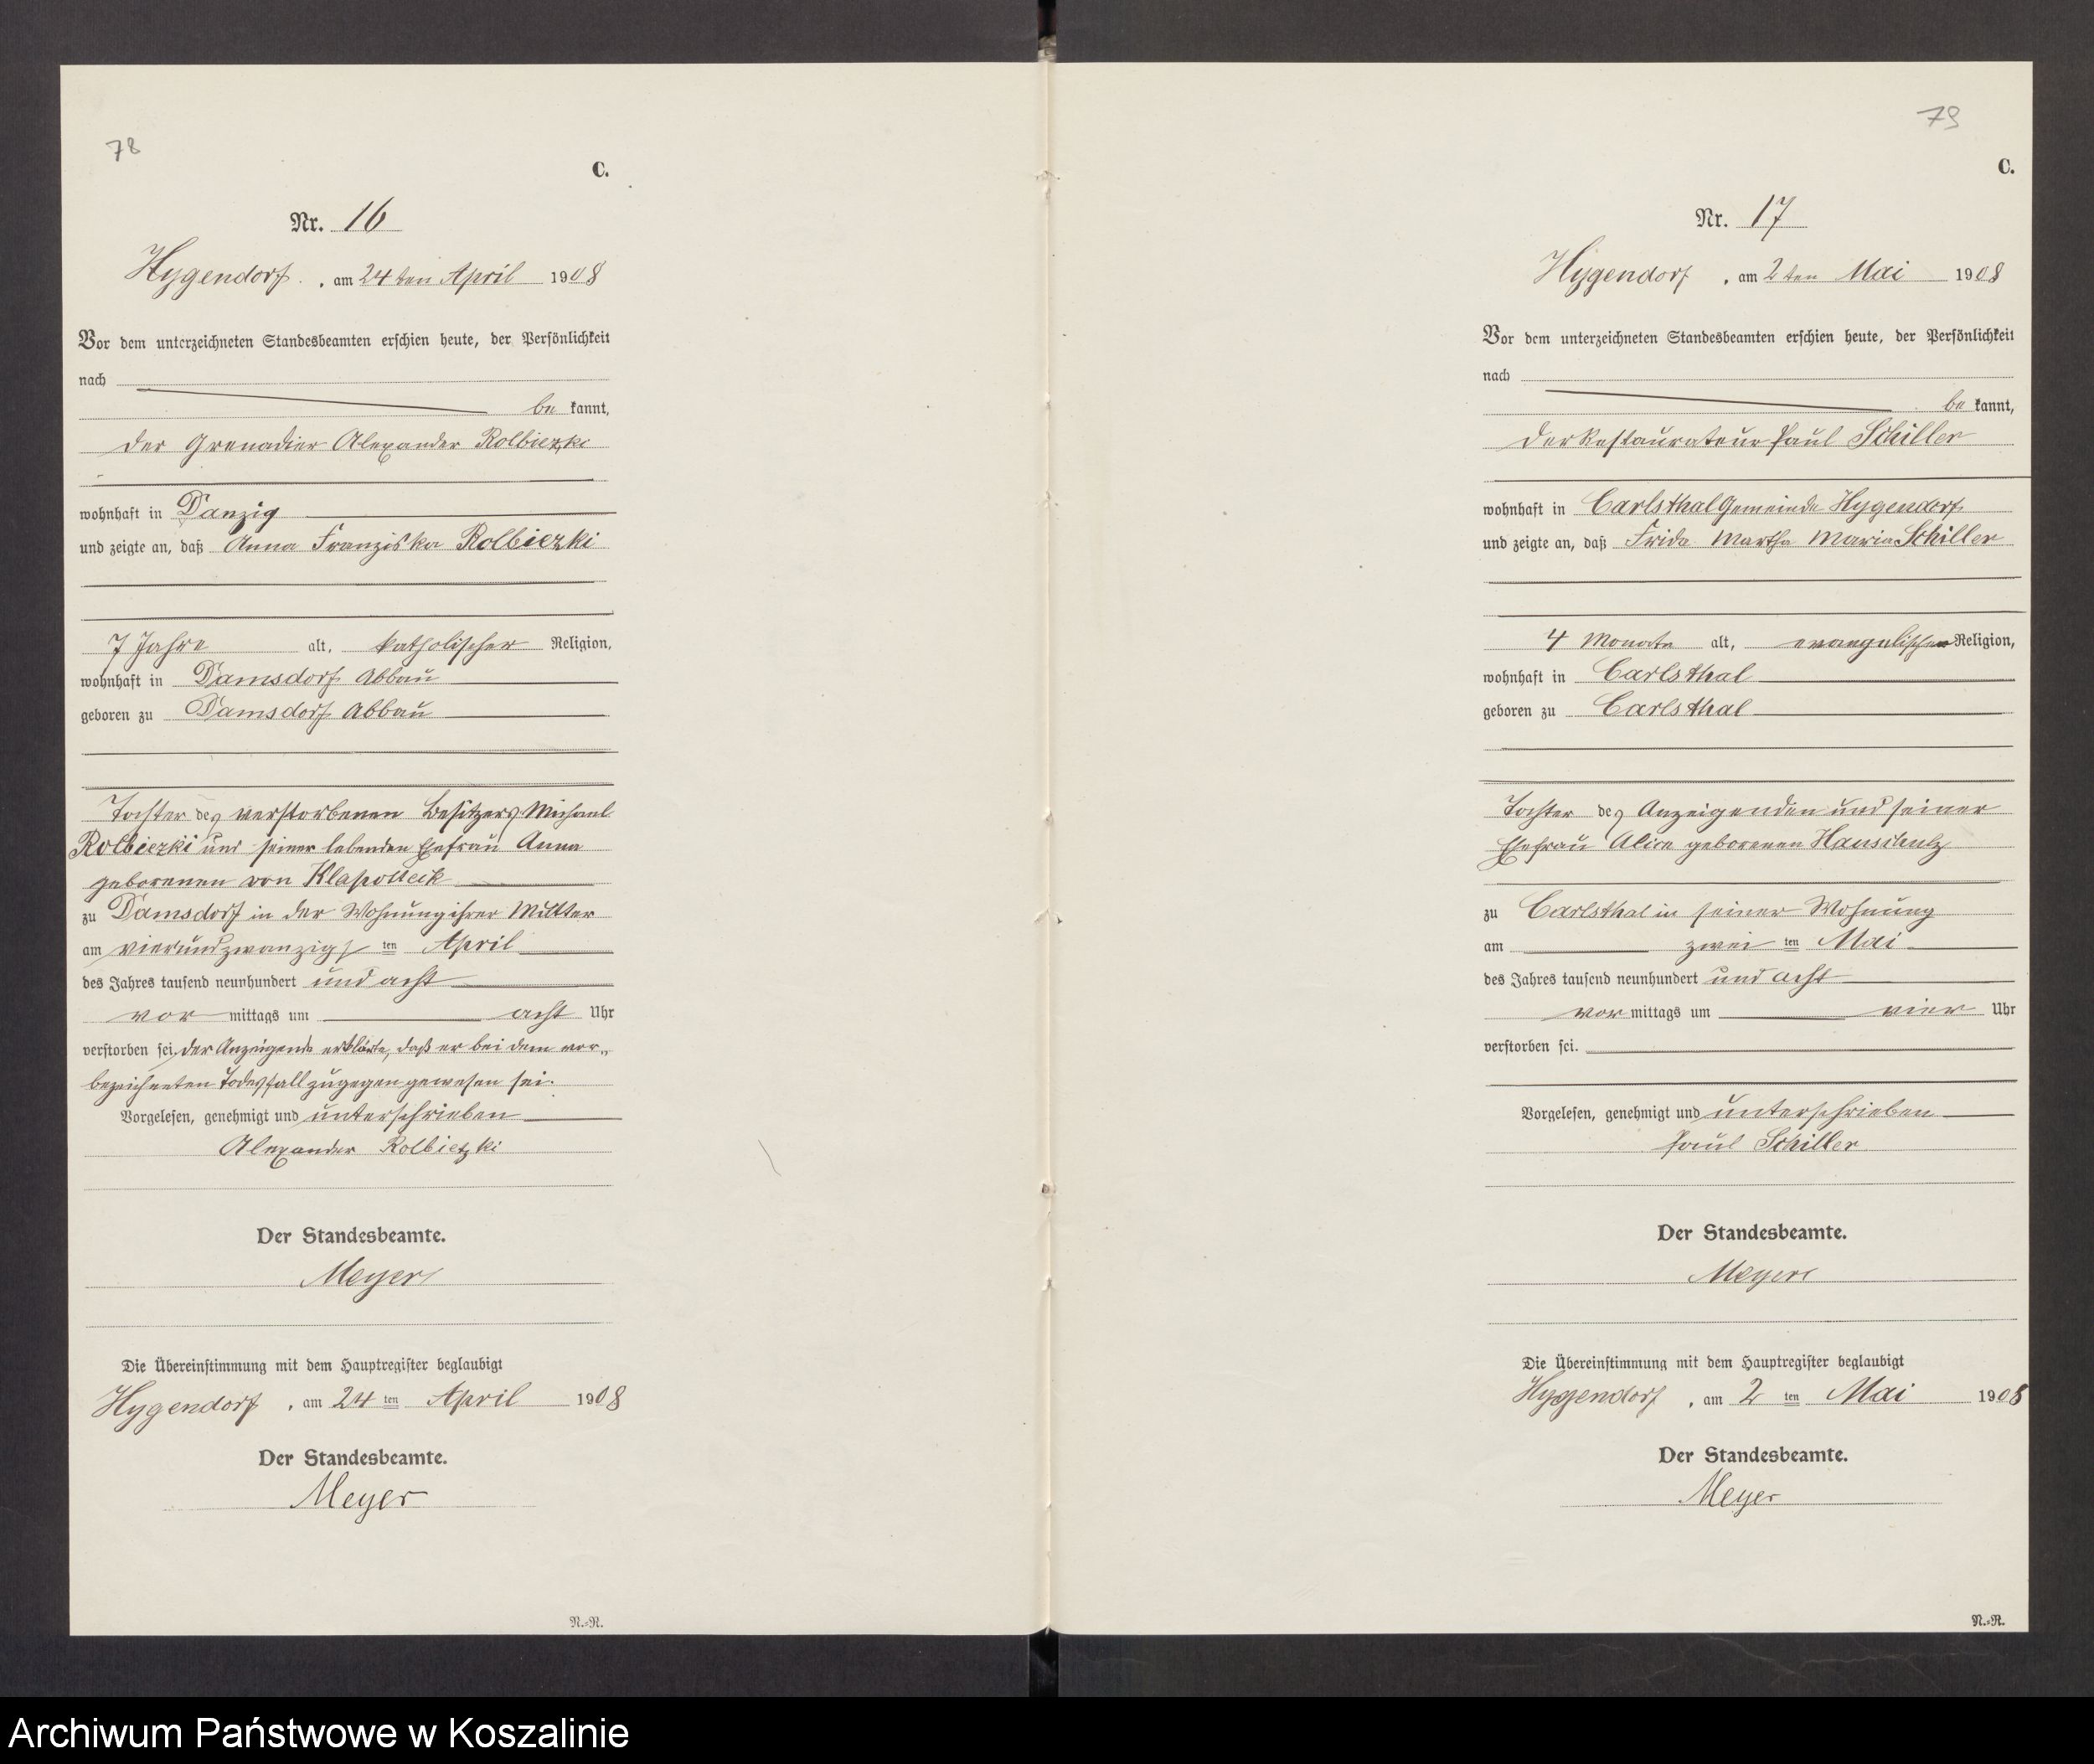 78
C.
Nr. 16
Hygendorf, am 24ten April 1908
Vor dem unterzeichneten Standesbeamten erschien heute, der Persönlichkeit
nach
be kannt,
der Grenadier Alexander Rolbiezki
wohnhaft in Danzig
und zeigte an, daß Anna Franziska Rolbiezki
7 Jahre alt, katholischer Religion,
wohnhaft in Damsdorf Abbau
geboren zu Damsdorf Abbau
Tochter des verstorbenen Besitzers Michael
Rolbiezki und seiner lebenden Ehefrau Anna
geborenen von Klapotteck
zu Damsdorf in der Wohnung ihrer Mutter
am vierundzwanzigsten April
des Jahres tausend neunhundert und acht
vor mittags um acht Uhr
verstorben sei, der Anzeigende erklärte, daß er bei dem vor„
bezeichneten Todesfall zugegen gewesen sei.
Vorgelesen, genehmigt und unterschrieben
Alexander Rolbietzki
Der Standesbeamte.
Meyer
Die Übereinstimmung mit dem Hauptregister beglaubigt
Hygendorf, am 24 ten April 1908
Der Standesbeamte.
Meyer
N.=R.
79
C.
Nr. 17
Hygendorf, am 2ten Mai 1908
Vor dem unterzeichneten Standesbeamten erschien heute, der Persönlichkeit
nach
be kannt,
der Restaurateur Paul Schiller
wohnhaft in Carlsthal Gemeinde Hygendorf
und zeigte an, daß Frida Martha Maria Schiller
4 Monate alt, evangelischer Religion,
wohnhaft in Carlsthal
geboren zu Carlsthal
Tochter des Anzeigenden und seiner
Ehefrau Alice geborenen Hauschulz
zu Carlsthal in seiner Wohnung
am zwei ten Mai
des Jahres tausend neunhundert und acht
vor mittags um vier Uhr
verstorben sei.
Vorgelesen, genehmigt und unterschrieben
Paul Schiller
Der Standesbeamte.
Meyer
Die Übereinstimmung mit dem Hauptregister beglaubigt
Hygendorf, am 2 ten Mai 1908
Der Standesbeamte.
Meyer
N.=R.
Archiwum Państwowe w Koszalinie